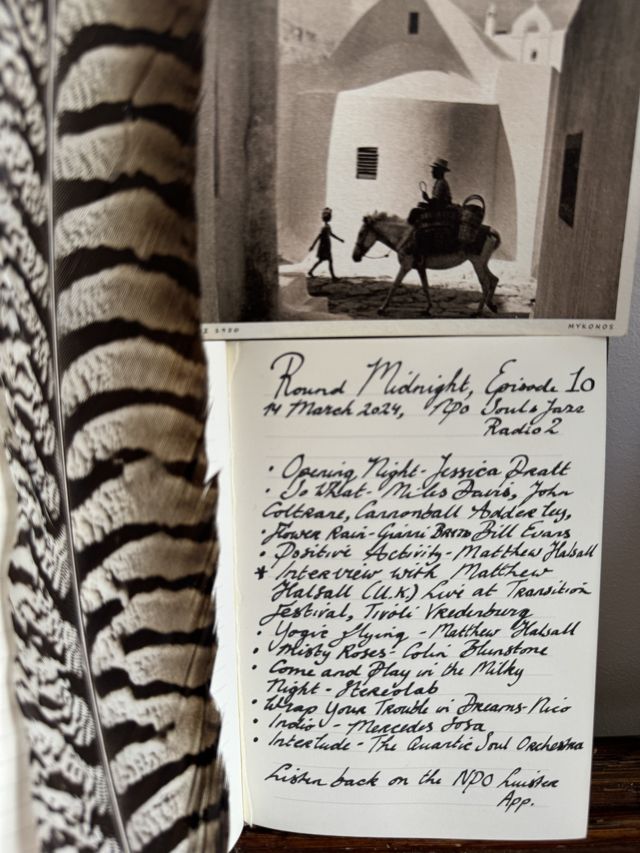 1950
MYKONOS
Round Midnight, Episode 10
14 March 2024, NPO Soul & Jazz
Radio 2
• Opening Night - Jessica Pratt
• So What - Miles Davis, John
Coltrane, Cannonball Adderley,
• Flower Rain - Gianni Brezzo Bill Evans
• Positive Activity - Matthew Halsall
* Interview with Matthew
Halsall (U.K.) Live at Transition
Festival, Tivoli Vredenburg
• Yogic flying - Matthew Halsall
• Misty Roses - Colin Blunstone
• Come and Play in the Milky
Night - Stereolab
• Wrap Your Trouble in Dreams - Nico
• Indio - Mercedes Sosa
• Interlude - The Quantic Soul Orchestra
Listen back on the NPO Luister
App.